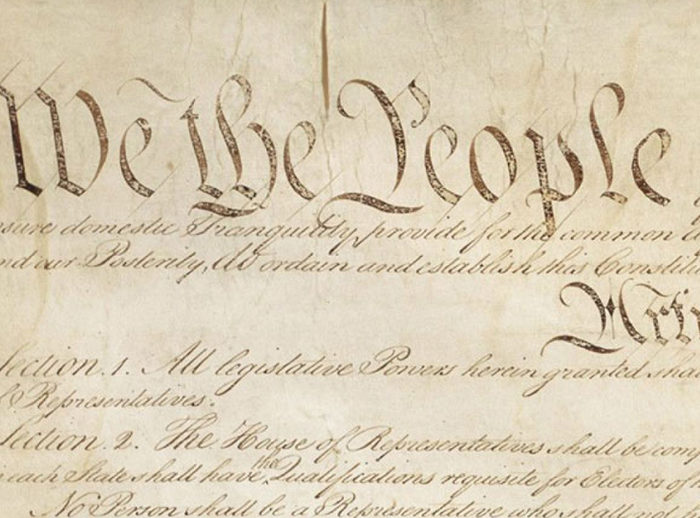 We the People
sure domestic Tranquility, provide for the common
our Posterity, do ordain and establish this Constit
Arti
Section. 1. All legislative Powers herein granted shal
Representatives.
Section. 2. The House of Representatives shall be comp
each State shall have the Qualifications requisite for Electors of
No Person shall be a Representative who shall not